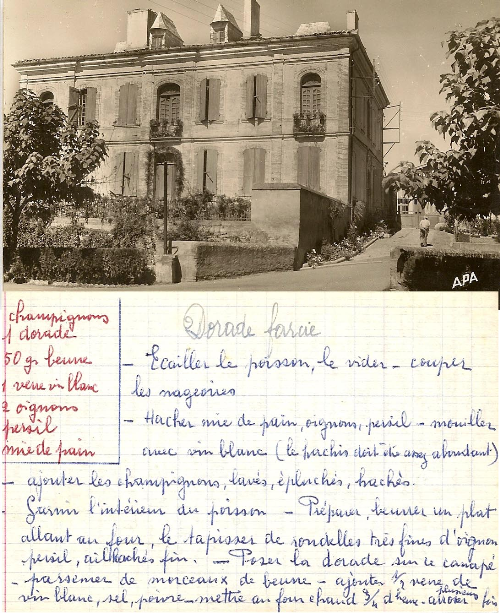 APA
champignons
1 dorade
50 gr beurre
1 verre vin blanc
2 oignons
persil
mie de pain
Dorade farcie
- Ecailler le poisson, le vider - couper
les nageoires
- Hacher mie de pain, oignons, persil - mouiller
avec vin blanc (le hachis doit être assez abondant)
- ajouter les champignons, lavés, épluchés, hachés.
- Garnir l'intérieur du poisson - Préparer, beurrer un plat
allant au four, le tapisser de rondelles très fines d'oignon
persil, ail hachés fin. - Poser la dorade sur ce canapé
- parsemer de morceaux de beurre - ajouter 1/2 verre de
vin blanc, sel, poivre - mettre au four chaud 3/4 d'heure - arroser plusieurs fois